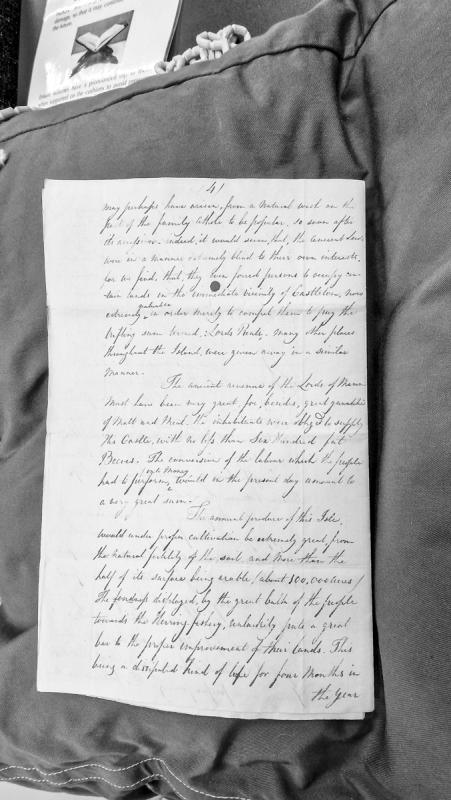 damage, so that it may continue
the future.
(4)
may perhaps have arisen, from a natural wish on the
part of the family Athole to be popular, so soon after
its accession. indeed, it would seem, that, the ancient Lords,
were in a manner extremely blind to their own interests,
for we find, that, they even forced persons to occupy cer-
tain lands in the immediate vicinity of Castletown, now
extremely valuable, in order merely to compel them to pay the
trifling sum termed, Lords Rents. many other places
throughout the Island, were given away in a similar
manner.
The ancient revenue of the Lords of Mann
must have been very great for, besides, great quantities
of Malt and Meal. the inhabitants were oblig'd to supply
the Castle, with no less than Six Hundred fat
Beeves. The conversion of the labour which the people
had to perform, into money would in the present day amount to
a very great sum.
The annual produce of this Isle,
would under proper cultivation be extremely great, from
the natural fertility of the soil, and more than the
half of its surface being arable (about 100,000 acres)
The fondness displayed, by the great bulk of the people
towards the Herring fishery, unluckily puts a great
bar to the proper improvement of their lands. This
being a dissipated kind of life for four months in
the year